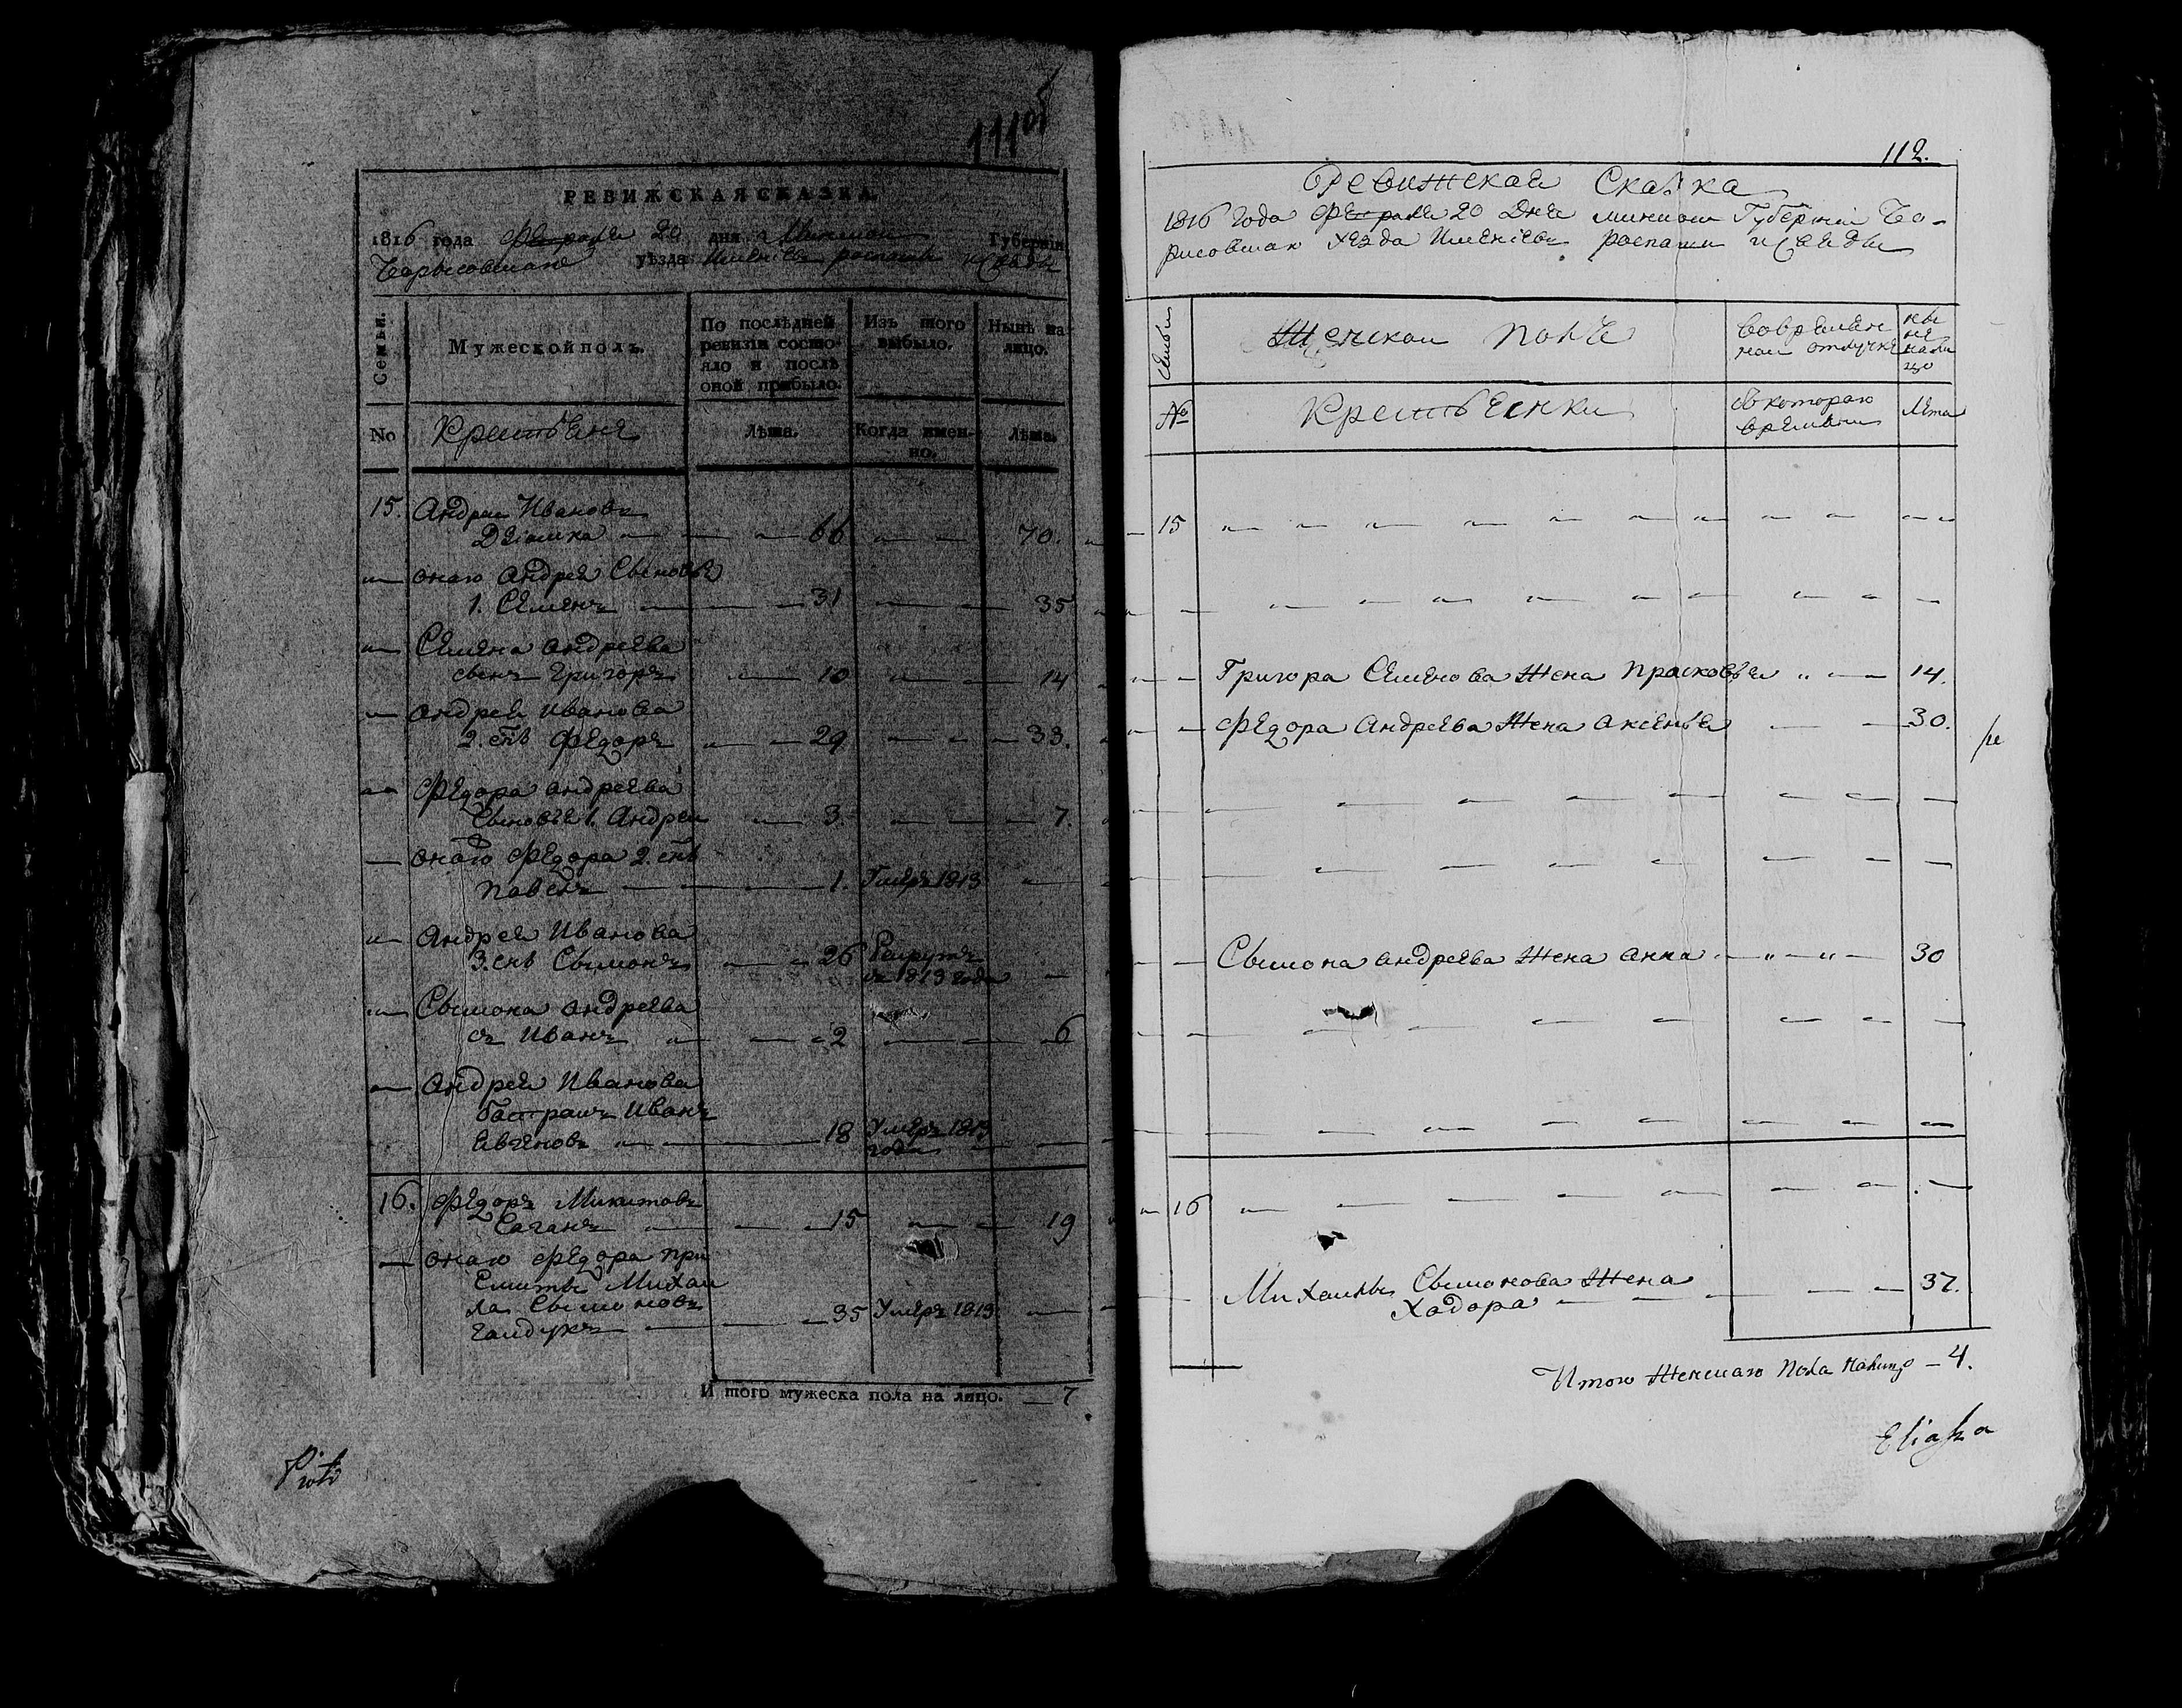 111 об
РЕВИЖСКАЯ СКАЗКА
1816 года Февраля 20 дня Минской Губерніи
Борысовскаго уѣзда Именіевъ
Семьи.
Мужеской полъ.
По послѣдней ревизіи состояло и послѣ оной прибыло.
Изъ того выбыло.
Нынѣ на лицо.
No
Крестьяне
Лѣта.
Когда именно.
Лѣта.
15. Андрей Ивановъ
— — 66 — — 70.
онаго Андрея Сыновья
1. Семенъ — — 31 — — 35
Семена Андреева
сынъ Григоръ — 10 — 14
Андрея Иванова
2. снъ Федоръ — — 29 — — 33.
Федора Андреева
Сыновья 1. Андрей — 3. — — 7.
онаго Федора 2. снъ
Павелъ — — 1. Умеръ 1813 —
Андрея Иванова
3. снъ Сымонъ — — 26 Рекрутъ
въ 1813 года —
Сымона Андреева
съ Иванъ — — 2 — — 6
Андрея Иванова
Иванъ
— — 18 Умеръ 1813
года — —
16. Федоръ Микитовъ
Саганъ — — 15 — — 19
онаго Федора при
Михай
ла Сымоновъ
Гайдукъ — — 35 Умеръ 1813 —
И того мужеска пола на лицо. — 7
112.
Ревижская Сказка
1816 Года Февраля 20 Дня минской Губерніи Бо-
рисовскаго уезда Именіевъ
Семьи
Женской Полъ
Во времян
ной отлучке
ны
не
нали
цо
№
Крестьянки
Съ котораго
времени
Лета
15 — — — — — — — — — — —
— — — — — — — — — —
— — Григора Семенова Жена Прасковья „ — — 14.
— — Федора Андреева Жена Аксенья — — 30.
— — — — — — — — —
— — — — — — — —
— — Сымона Андреева Жена Анна — „ — „ — 30
— — — — — — — — —
— — — — — — — — —
16 — — — — — — — . —
Михайлы Сымонова Жена
Ходора — — — — — 37.
Итого Женскаго Пола Налицо — 4.